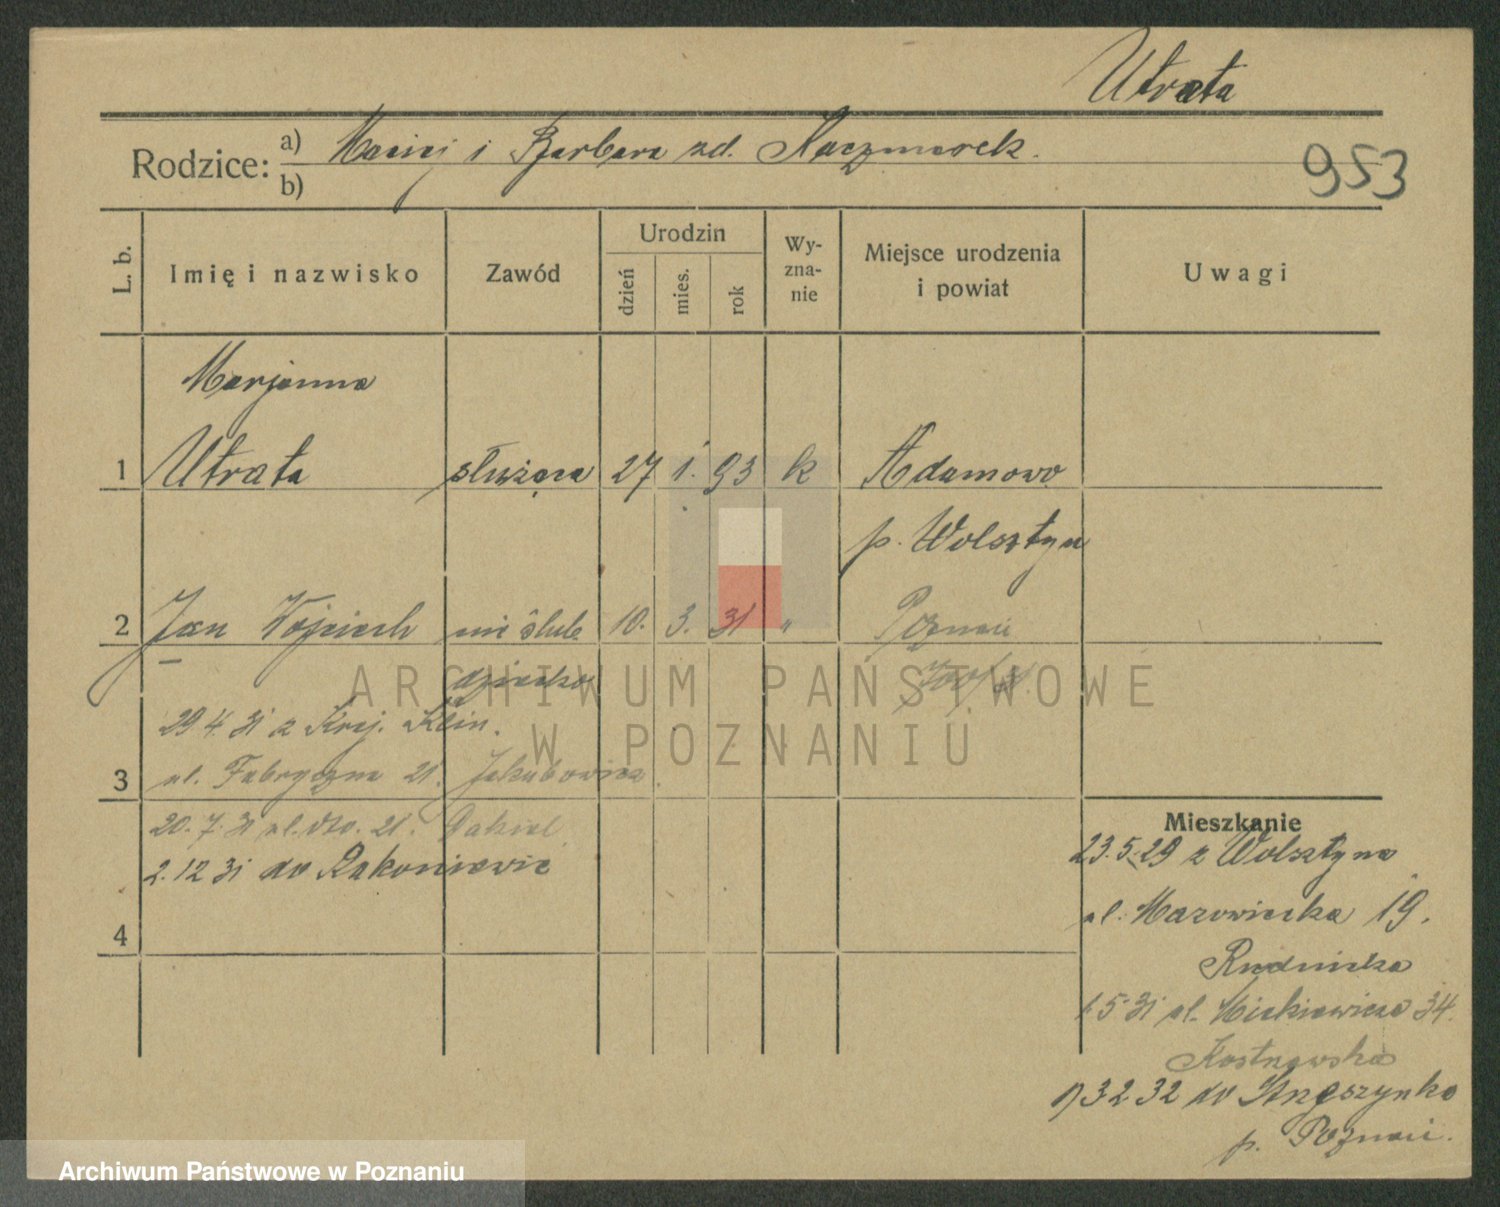 Utrata
Rodzice: a) Maciej i Barbara zd. Kaczmarek.
b)
953
L. b.
Imię i nazwisko
Zawód
Urodzin
dzień
mies.
rok
Wy-
zna-
nie
Miejsce urodzenia
i powiat
Uwagi
Marjanna
1 Utrata służąca 27 1. 93 k Adamowo
p. Wolsztyn
2 Jan Wojciech nie ślub. 10. 3. 31 " Poznań
dziecko
29.4.31 z Kraj. Klin.
3 ul. Fabryczna 21. Jakubowicz
20.7.31 ul. dto. 21.
2.12 31 do Rakoniewic
4
Mieszkanie
23.5.29 z Wolsztyna
ul. Mazowiecka 19.
Rudnicka
1.5.31 ul. Mickiewicza 34.
3 2 32 do Strzeszynka
p. Poznań.
ARCHIWUM PAŃSTWOWE
W POZNANIU
Archiwum Państwowe w Poznaniu